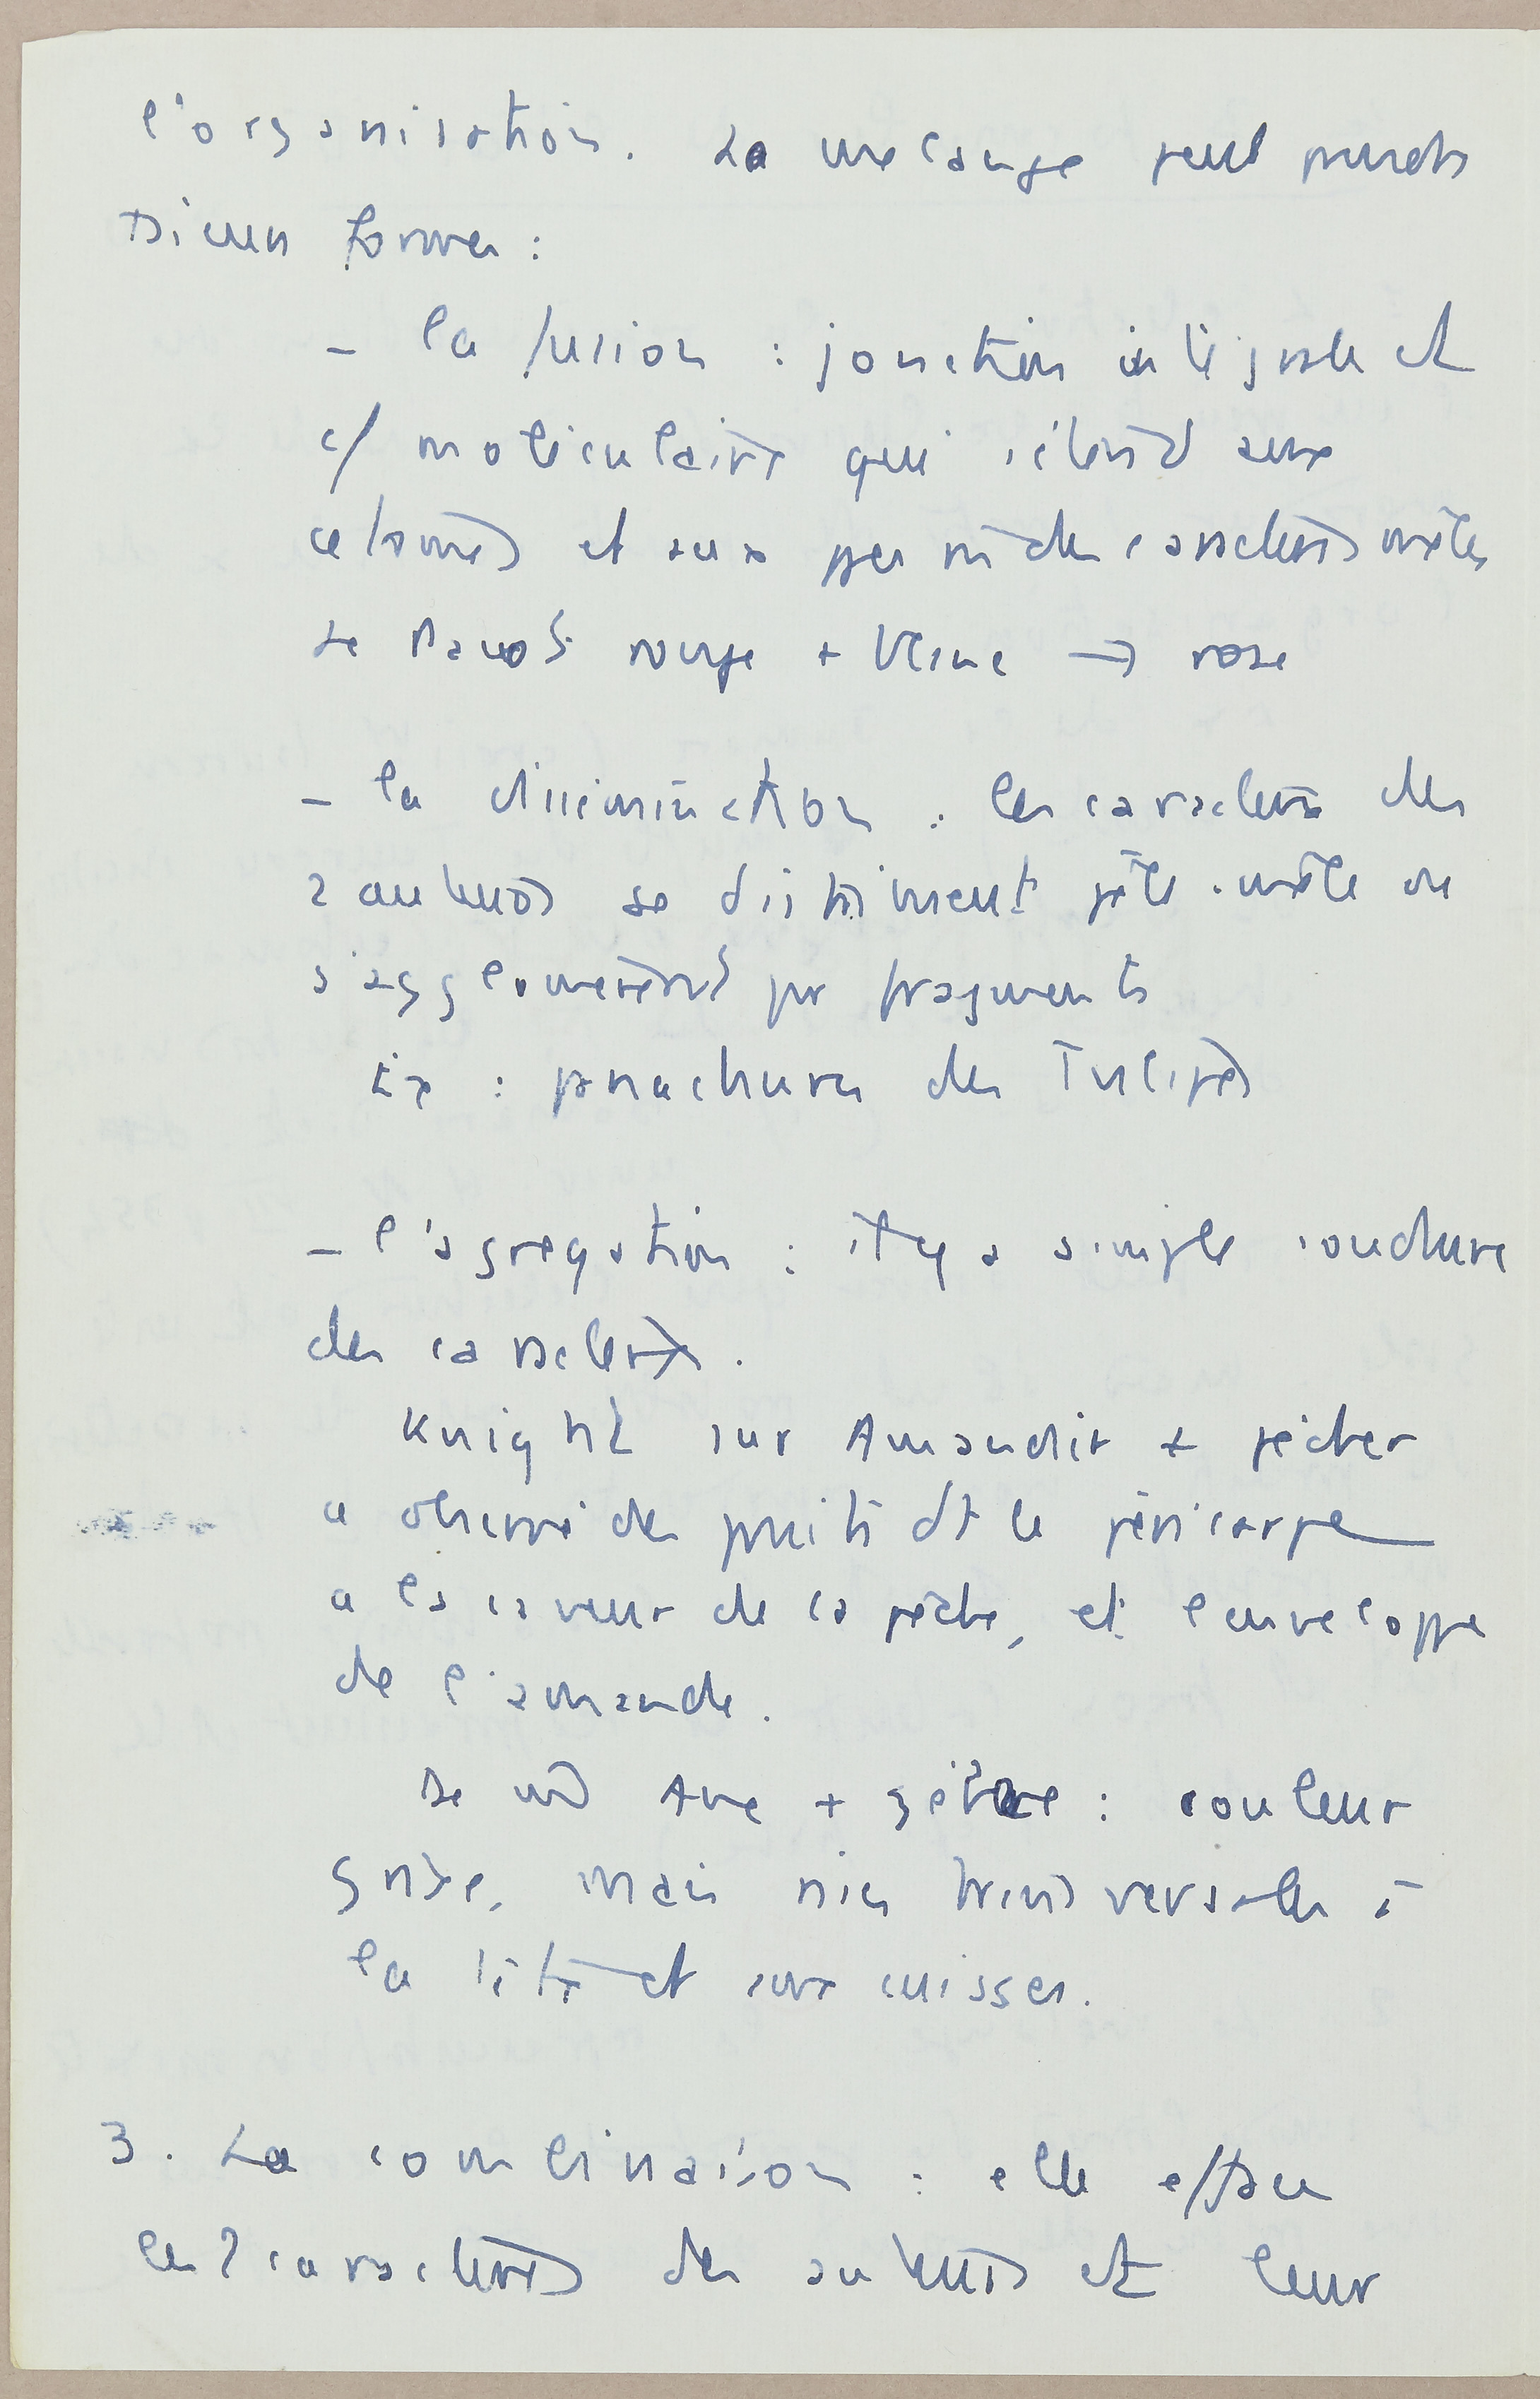 l'organisation. Le mélange peut prendre
formes :
- la fusion : jonction intégrale et
c/ moléculaire qui s'étend aux
et aux des caractères mêlés
Le Pavot rouge + blanc → rose
- la dissémination : les caractères des
2 auteurs se distribuent pêle-mêle ou
s'agglomèrent par fragments
Ex : panachures des Tulipes
- l'agrégation : il y a simple soudure
des caractères.
Knight sur Amandier + pêcher
a observé des fruits dt le péricarpe
a la saveur de la pêche, et l'enveloppe
de l'amande.
De Ane + zèbre : couleur
grise, mais raies transversales à
la tête et aux cuisses.
3. La combinaison : elle efface
les 2 caractères des auteurs et leur